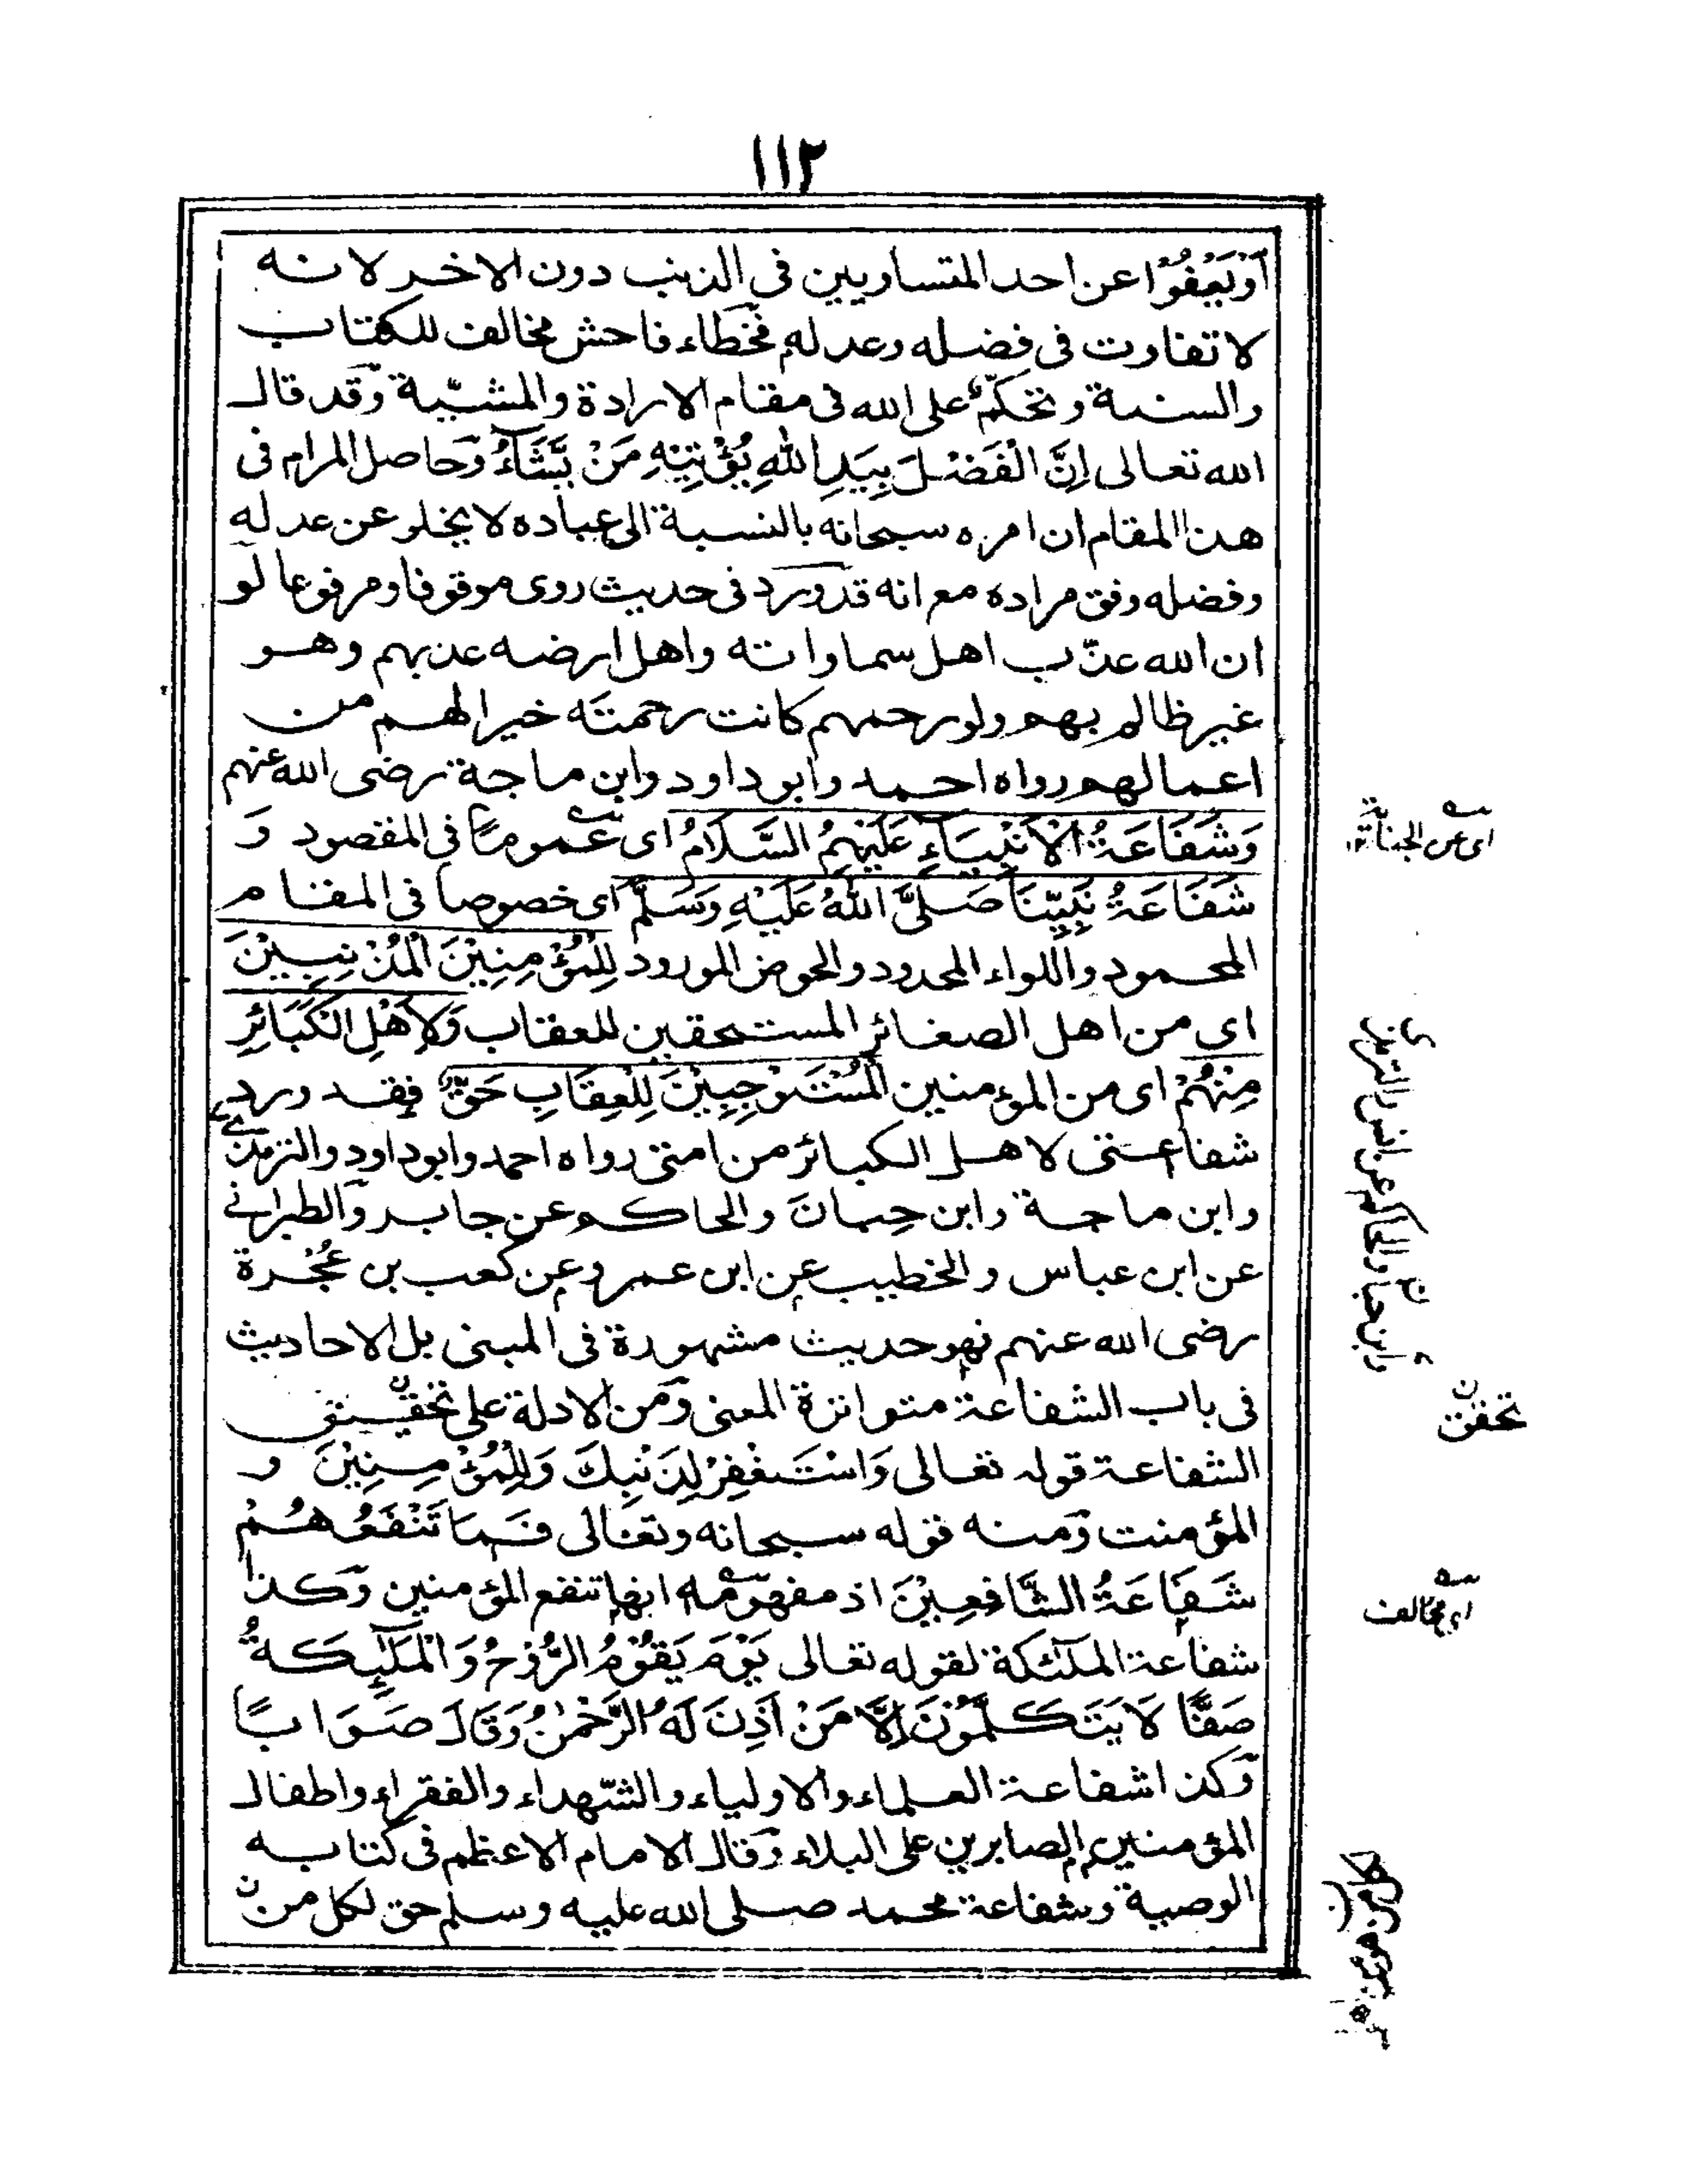 ١١٢
اَوْ يَعْفُوْا عن احد المتساويين فى الذنب دون الاخر لانه
لا تفاوت فى فضله وعدله فخطاء فاحش مخالف للكتاب
والسنة وتحكّم على الله فى مقام الارادة والمشيّة وقد قال
الله تعالى اِنَّ الْفَضْلَ بِيَدِ اللّٰهِ يُؤْتِيْهِ مَنْ يَّشَآءُ وحاصل المرام فى
هذا المقام ان امره سبحانه بالنسبة الى عباده لا يخلو عن عدله
وفضله وفق مراده مع انه قد ورد فى حديث روى موقوفا ومرفوعا لو
ان الله عذّب اهل سماواته واهل ارضه عذبهم وهو
غير ظالم بهم ولو رحمهم كانت رحمته خيرا لهم من
اعمالهم رواه احمد وابو داود وابن ماجة رضى الله عنهم
وَشَفَاعَةُ الْاَنْبِيَاءِ عَلَيْهِمُ السَّلَامُ اى عموماً فى المقصود وَ
شَفَاعَةُ نَبِيِّنَا صَلَّى اللّٰهُ عَلَيْهِ وَسَلَّمَ اى خصوصا فى المقام
المحمود واللواء الممدود والحوض المورود لِلْمُؤْمِنِيْنَ الْمُذْنِبِيْنَ
اى من اهل الصغائر المستحقين للعقاب وَلِاَهْلِ الْكَبَائِرِ
مِنْهُمْ اى من المؤمنين الْمُسْتَوْجِبِيْنَ لِلْعِقَابِ حَقٌّ فقد ورد
شفاعتى لاهل الكبائر من امتى رواه احمد وابو داود والترمذى
وابن ماجة وابن حبان والحاكم عن جابر والطبرانى
عن ابن عباس والخطيب عن ابن عمر وعن كعب بن عُجْرة
رضى الله عنهم فهو حديث مشهورة فى المبنى بل الاحاديث
فى باب الشفاعة متواترة المعنى ومن الادلة على تحقيق
الشفاعة قوله تعالى وَاسْتَغْفِرْ لِذَنْبِكَ وَلِلْمُؤْمِنِيْنَ و
المؤمنت ومنه قوله سبحانه وتعالى فَمَا تَنْفَعُهُمْ
شَفَاعَةُ الشَّافِعِيْنَ اذ مفهومه انها تنفع المؤمنين وكذا
شفاعة الملئكة لقوله تعالى يَوْمَ يَقُوْمُ الرُّوْحُ وَالْمَلٰٓئِكَةُ
صَفًّا لَا يَتَكَلَّمُوْنَ اِلَّا مَنْ اَذِنَ لَهُ الرَّحْمٰنُ وَقَالَ صَوَابًا
وكذا شفاعة العلماء والاولياء والشّهداء والفقراء واطفال
المؤمنين الصابرين على البلاء وقال الامام الاعظم فى كتابه
الوصية وشفاعة محمد صلى الله عليه وسلم حق لكل من
اى عن الجناية
تحقق
اى مخالف